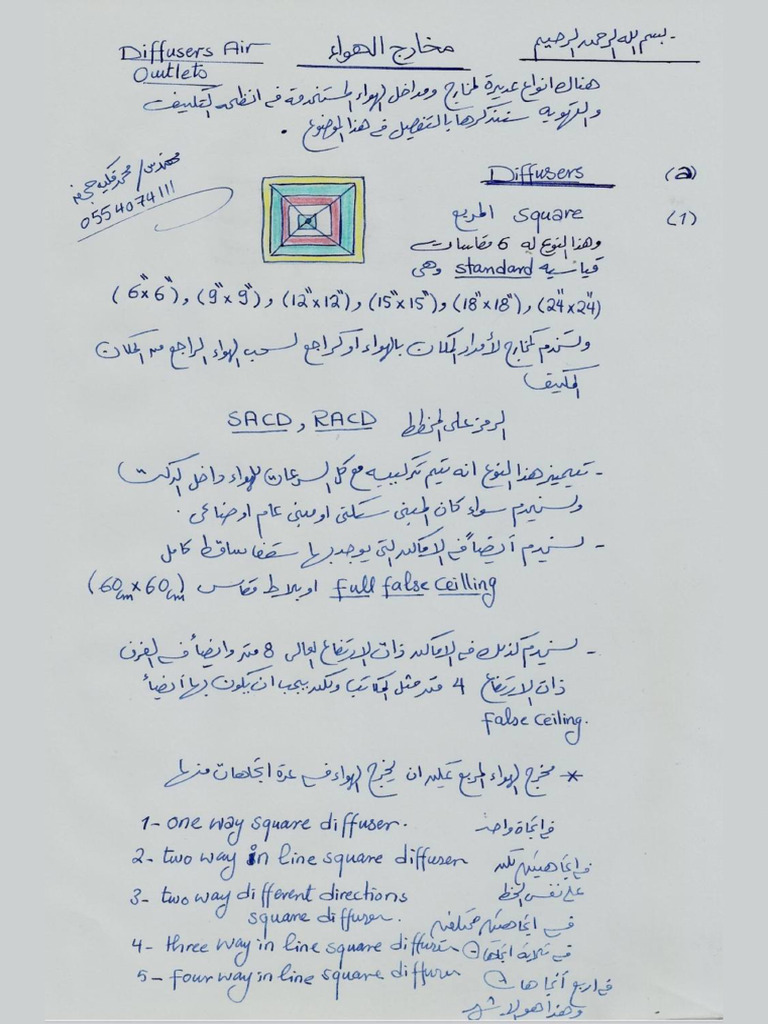 - بسم الله الرحمن الرحيم
مخارج الهواء
Diffusers Air
Outlets
هناك انواع عديدة لمخارج ومداخل الهواء المستخدمة فى انظمه التكييف
والتهويه سنذكرها بالتفصيل فى هذا الموضوع .
مهندس / محمد
0554074111
(a) Diffusers
(1) square المربع
وهذا النوع له 6 مقاسات
قياسيه standard وهى
(24"x24") , (18"x18") و (15"x15") و (12"x12") و (9"x9") , (6"x6")
وتستخدم كمخارج لأمداد المكان بالهواء او كراجع لسحب الهواء الراجع من المكان
المكيف
الرمز على المخطط SACD , RACD
- تتميز هذا النوع انه يتم تركيبيه مع كل السرعات للهواء داخل الدكت
وتستخدم سواء كان المبنى سكنى او مبنى عام او صناعى .
- تستخدم أيضاً فى الاماكن التى يوجد بها سقف ساقط كامل
full false ceilling او بلاط مقاس (60cm x 60cm)
- تستخدم كذلك فى الاماكن ذات الارتفاع العالى 8 متر وايضاً فى الغرف
ذات الارتفاع 4 متر مثل المكاتب ولكن يجب ان يكون بها أيضاً
false ceiling.
* مخرج الهواء المربع يمكن ان يخرج الهواء فى عدة اتجاهات منها
1- one way square diffuser. فى اتجاة واحد
2- two way in line square diffuser فى اتجاهين لكن
على نفس الخط
3- two way different directions
square diffuser. فى اتجاهين مختلفين
4- three way in line square diffuser فى ثلاثة اتجاهات
5- four way in line square diffuser فى اربع أتجاهات
وهذا هو الاشهر